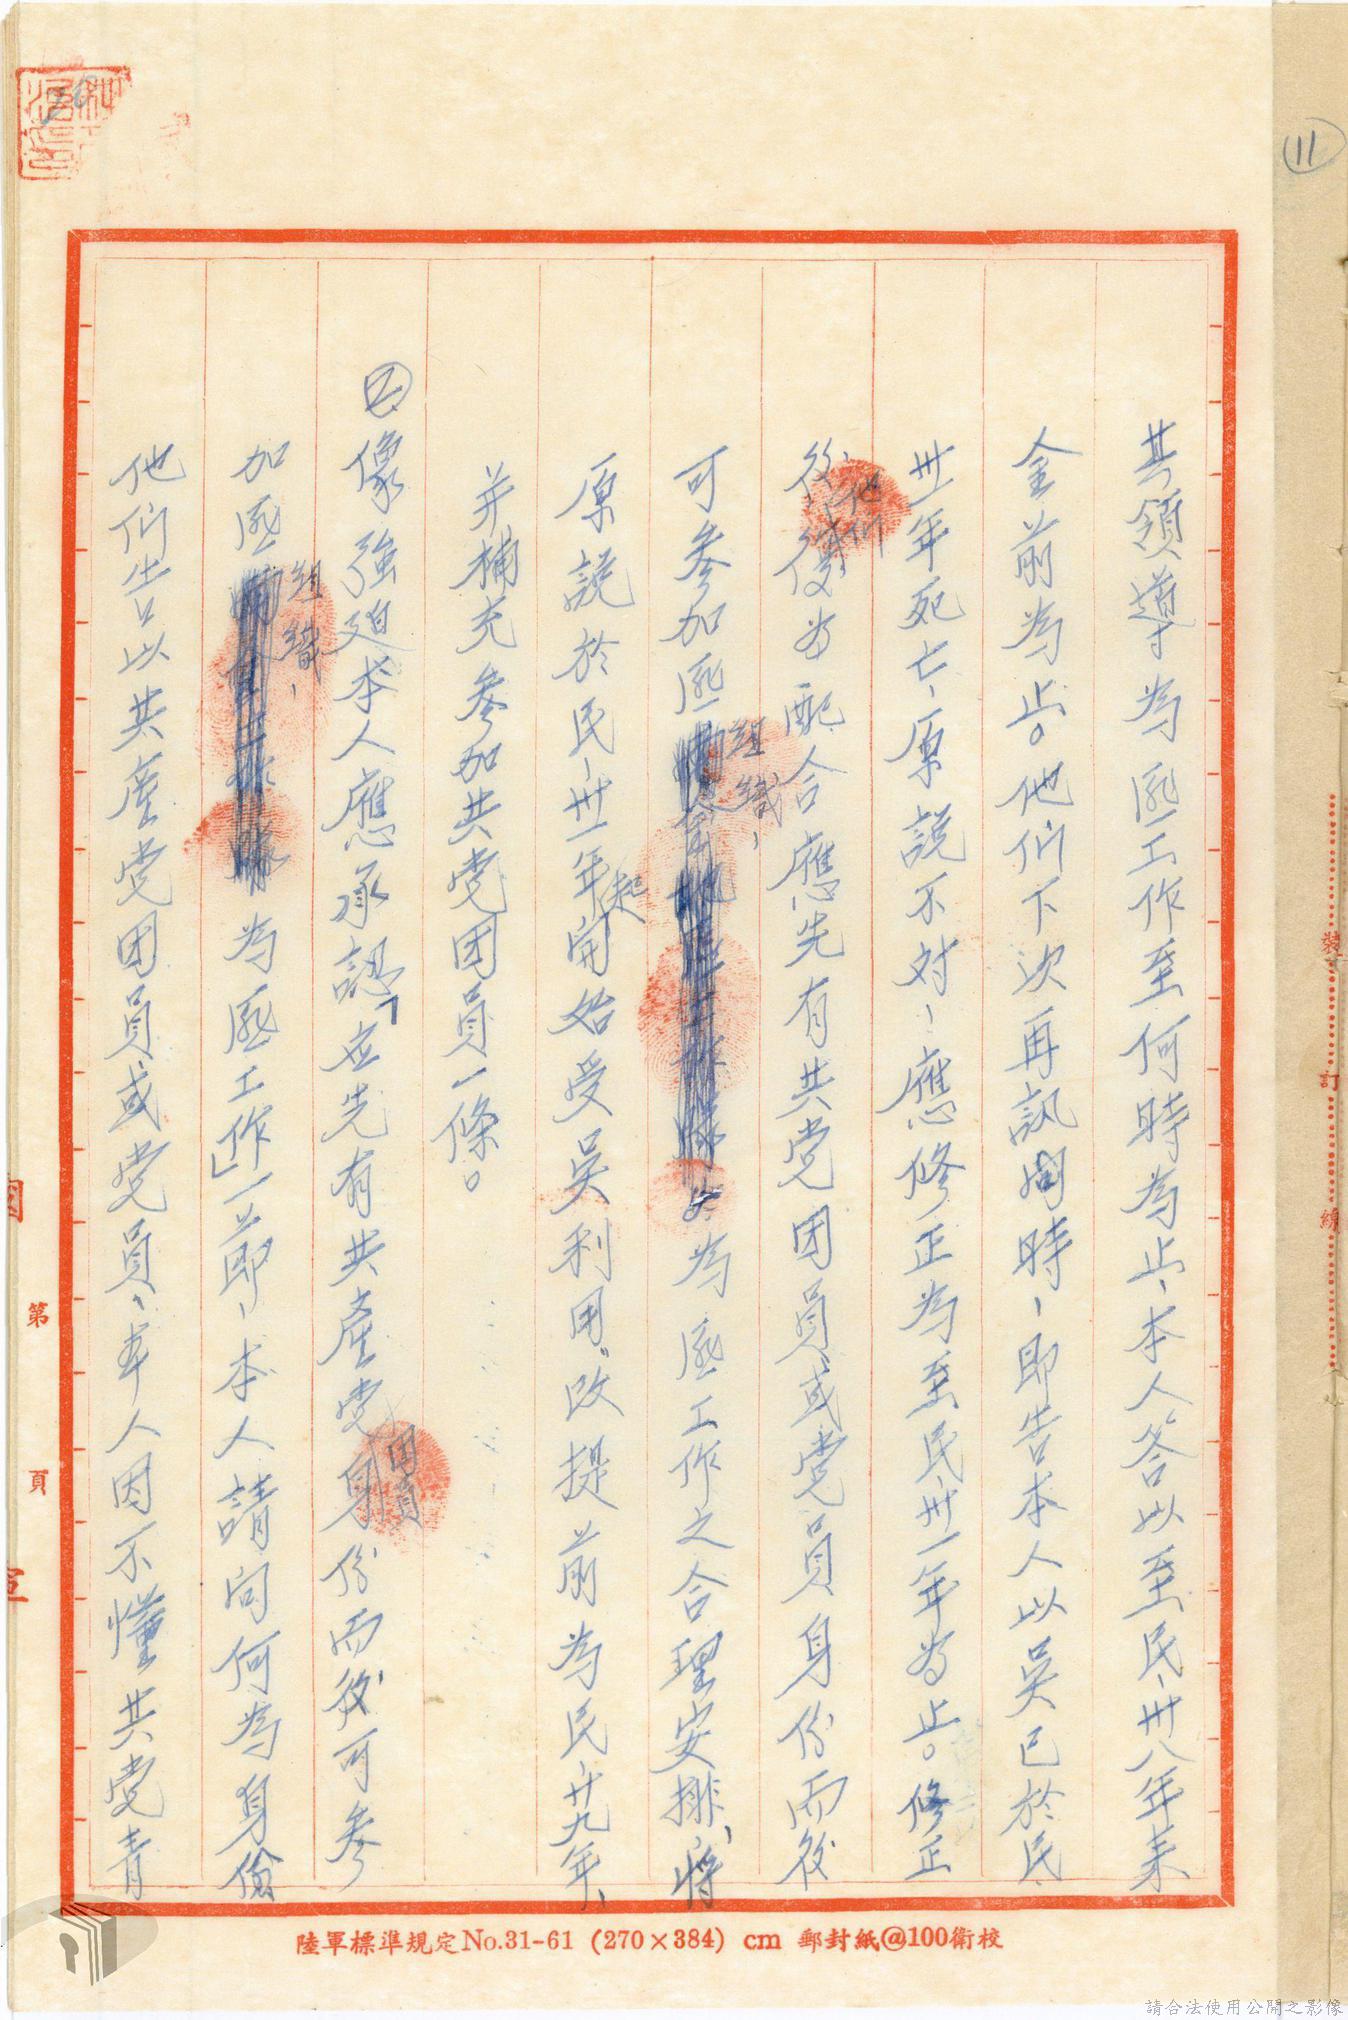 11
其領導為匪工作至何時為止、本人答以至民、卅八年来
金前為止。他们下次再訊问時、即告本人以吳已於民
卅一年死亡、原説不对、應修正為至民卅一年為止。修正
後、他们復為配合應先有共党团員或党員身份而後
可參加匪組織、為匪工作之合理安排、将
原説於民、卅一年起開始受吳利用。改提前為民、廿九年、
并補充參加共党团員一條。
㈡像強廹本人應承認「应先有共產党团員身份而後可參
加匪組織、為匪工作」一節、本人請问何為身份
他们告以共產党团員或党員、本人因不懂共党青
第 頁
裝訂線
陸軍標準規定No.31-61 (270×384) cm 郵封紙@100衛校
請合法使用公開之影像